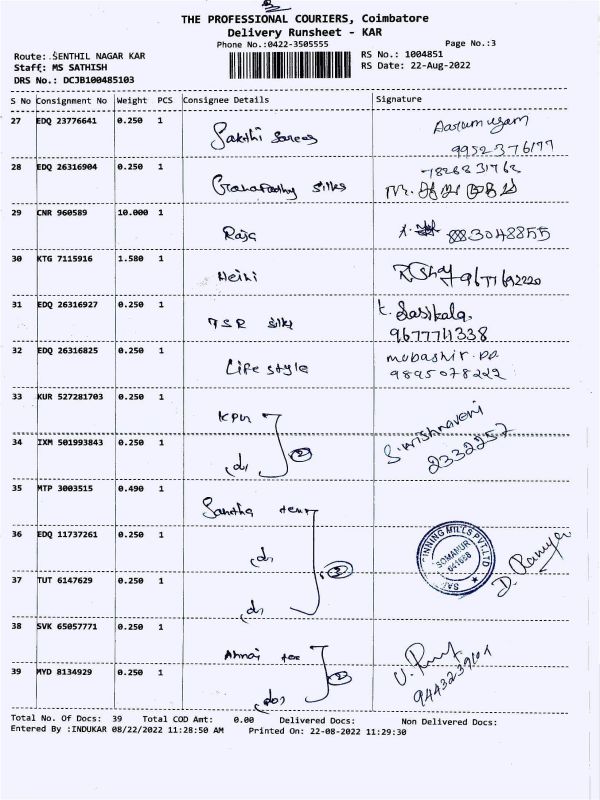 THE PROFESSIONAL COURIERS, Coimbatore
Delivery Runsheet - KAR
Phone No.:0422-3505555
Page No.:3
Route: SENTHIL NAGAR KAR
RS No.: 1004851
Staff: MS SATHISH
RS Date: 22-Aug-2022
DRS No.: DCJB100485103
S No Consignment No Weight PCS Consignee Details Signature
27 EDQ 23776641 0.250 1
Sakthi Sarees
9952376177
28 EDQ 26316904 0.250 1
silks
29 CNR 960589 10.000 1
Raja
8883048855
30 KTG 7115916 1.580 1
9671692220
31 EDQ 26316927 0.250 1
TSR silks
t. Sasikala,
9677711338
32 EDQ 26316825 0.250 1
Life style
mubashir. pp
9895078222
33 KUR 527281703 0.250 1
KPN
34 IXM 501993843 0.250 1
do
2
2332252
35 MTP 3003515 0.490 1
36 EDQ 11737261 0.250 1
do
3
SPINNING MILLS PVT.LTD
SOMANUR
641668
D. Ramya
37 TUT 6147629 0.250 1
do
38 SVK 65057771 0.250 1
39 MYD 8134929 0.250 1
do
2
Total No. Of Docs: 39 Total COD Amt: 0.00 Delivered Docs: Non Delivered Docs:
Entered By :INDUKAR 08/22/2022 11:28:50 AM Printed On: 22-08-2022 11:29:30